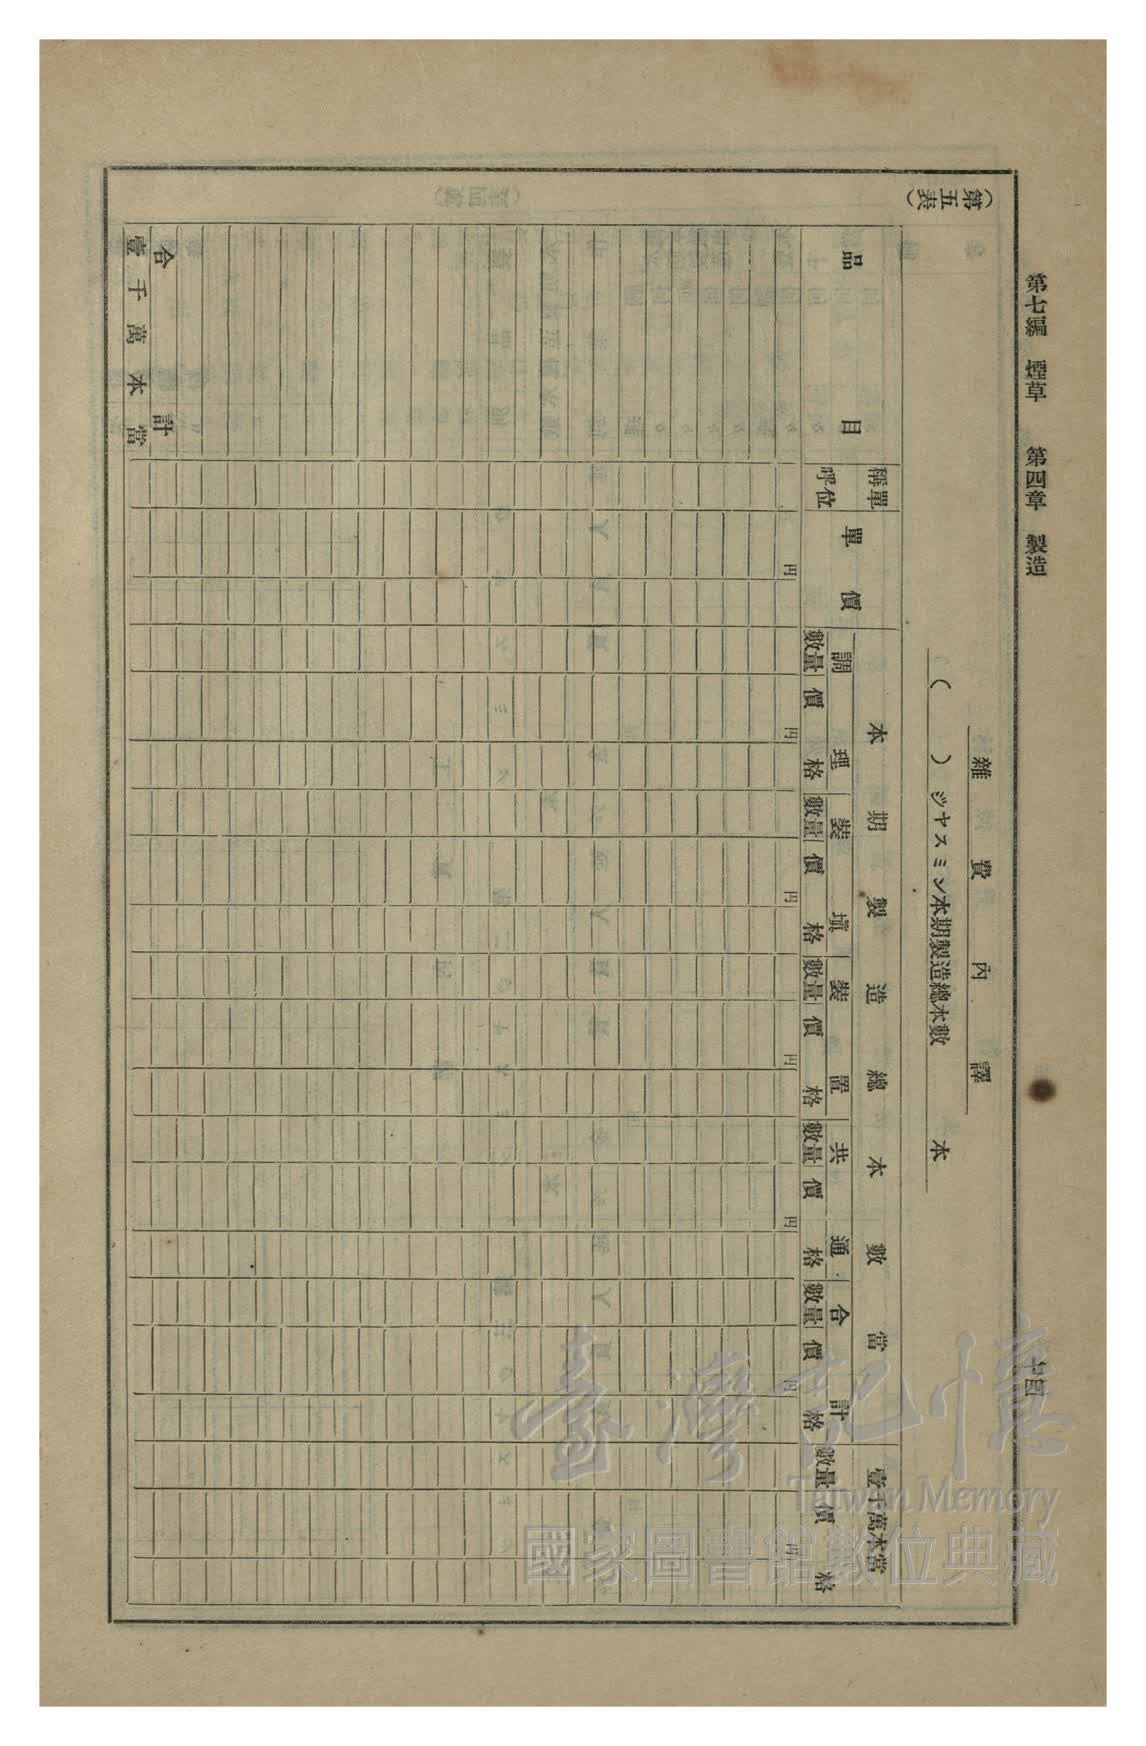 第七編 煙草 第四章 製造
(第五表)
雜費內譯
( ) ジヤスミン本期製造總本數 本
品目
稱單
呼位
單價
円
本期製造總本數當
調理
數量 價格
円
裝塡
數量 價格
円
裝置
數量 價格
円
共通
數量 價格
円
合計
數量 價格
円
壹千萬本當
數量 價格
円
合計
壹千萬本當
臺灣記憶
Taiwan Memory
國家圖書館數位典藏